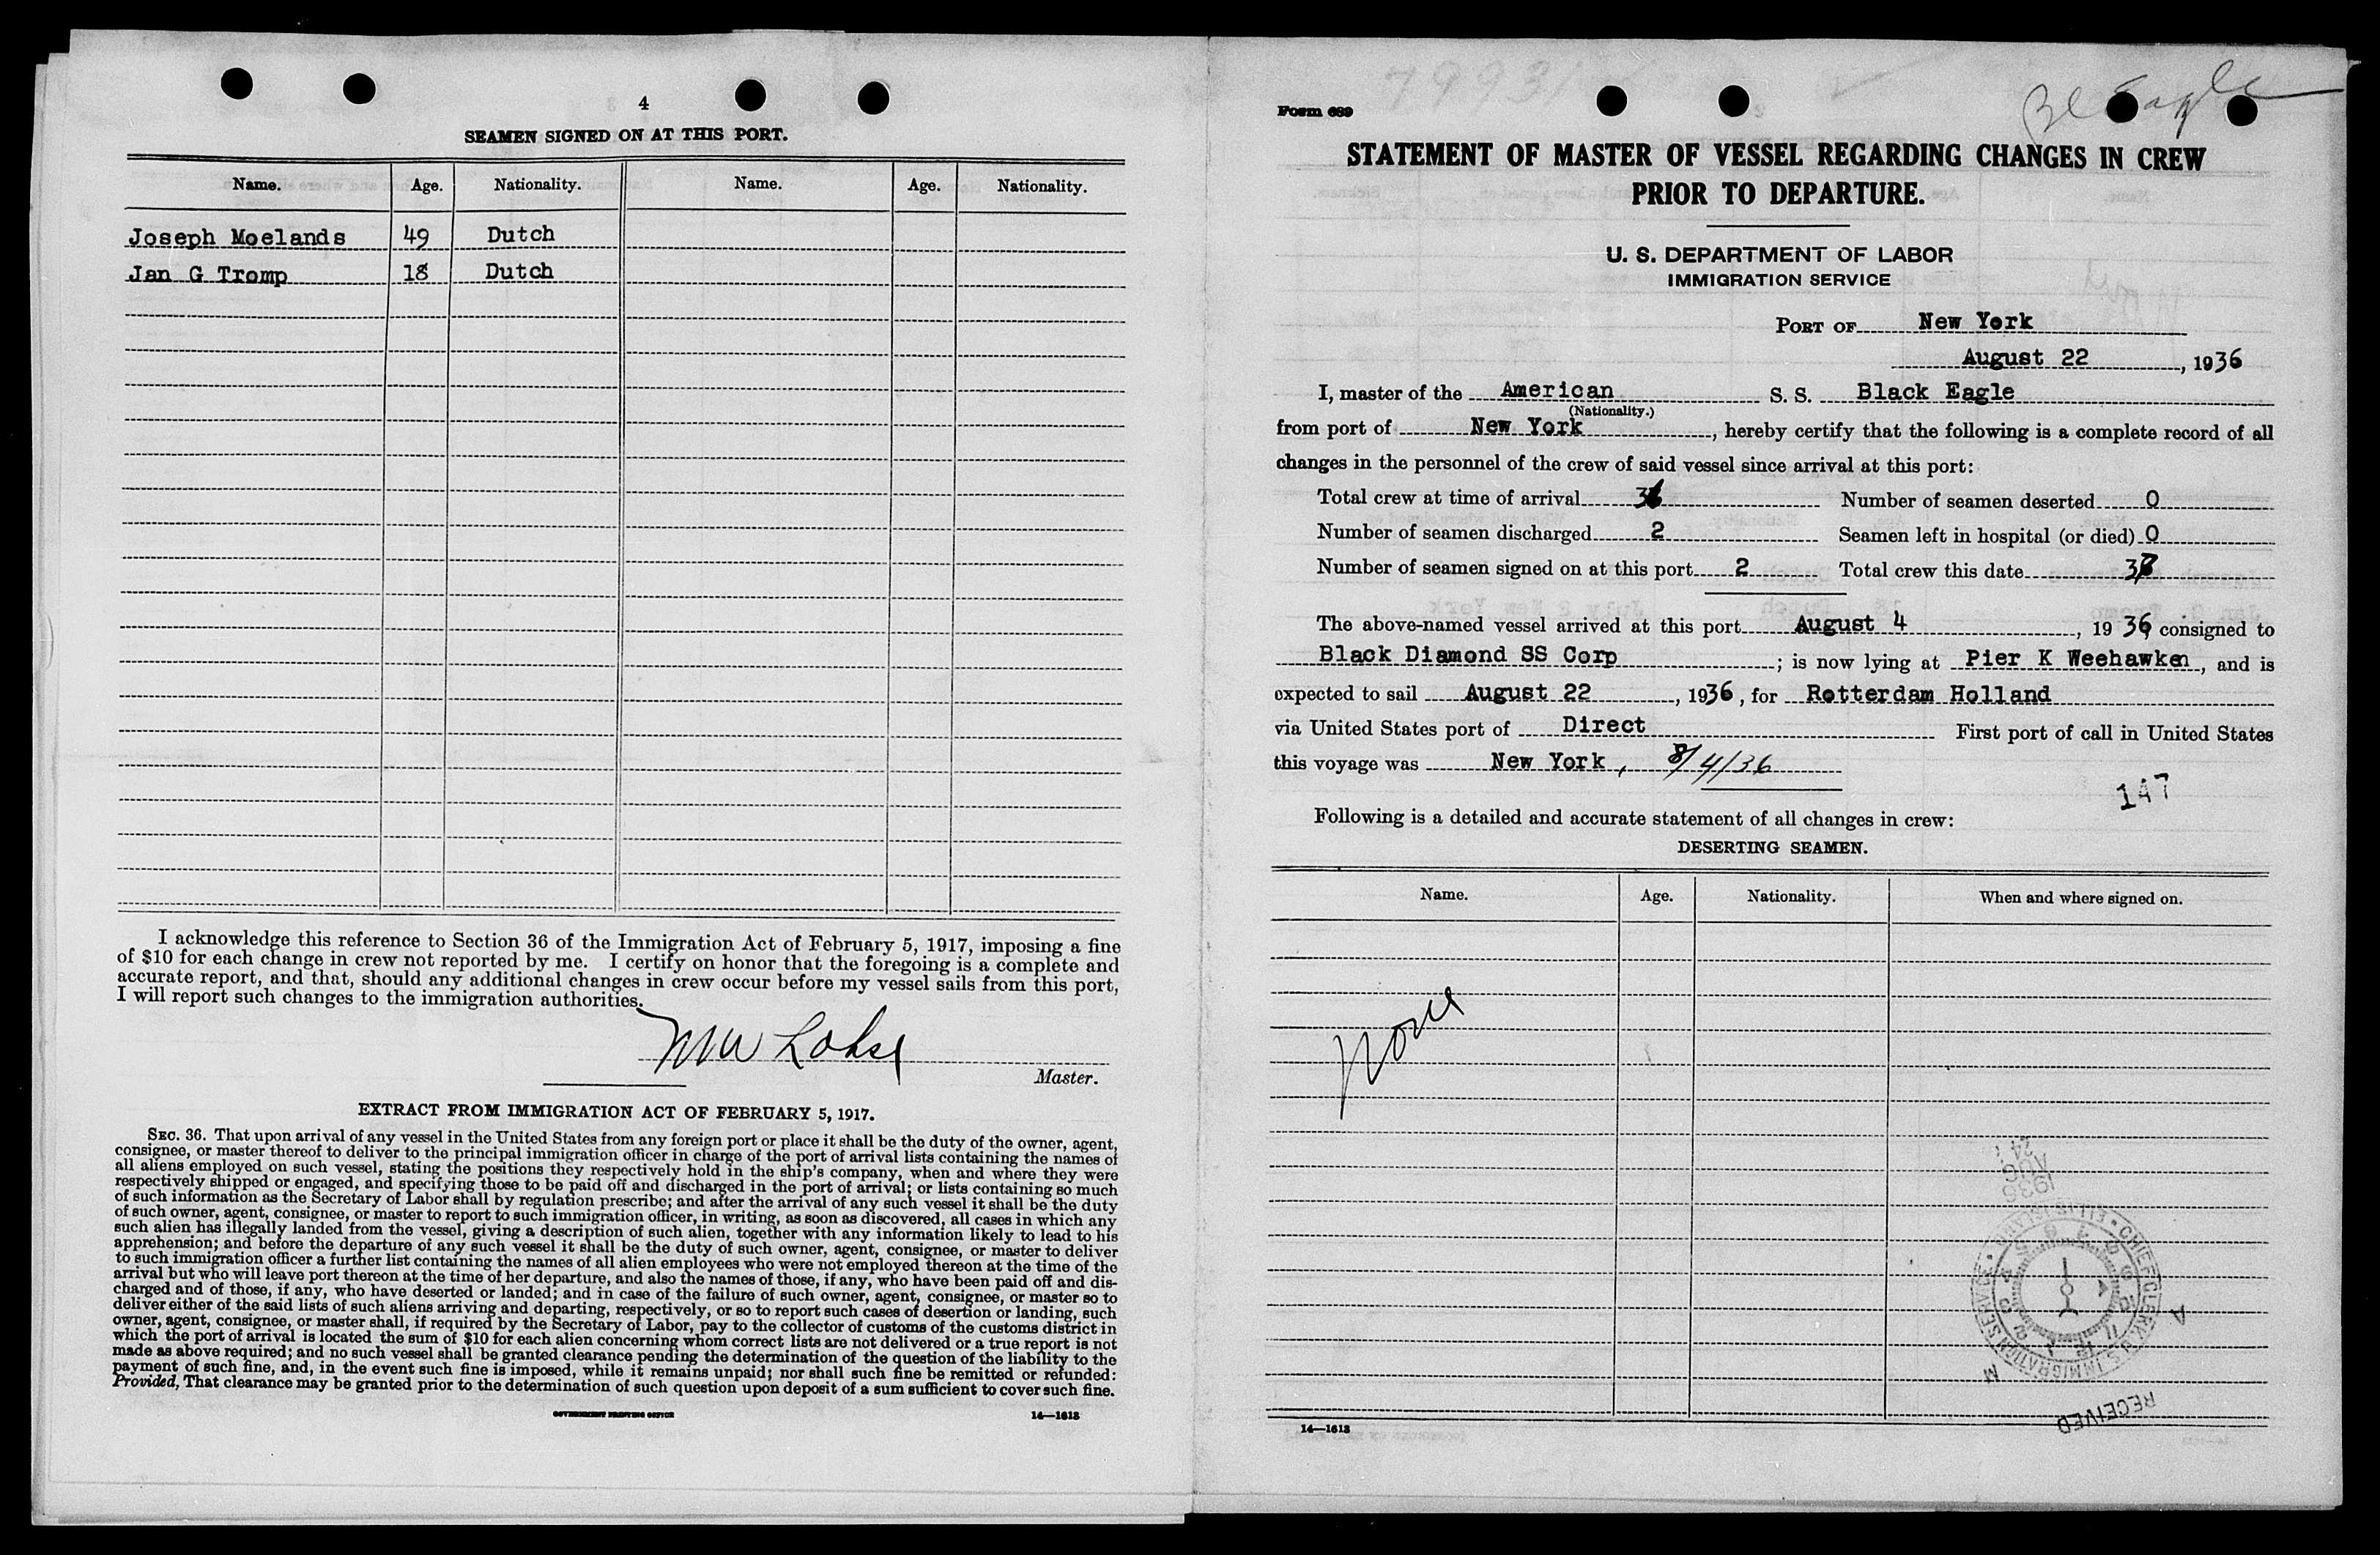 4
SEAMEN SIGNED ON AT THIS PORT.
Name. Age. Nationality. Name. Age. Nationality.
Joseph Moelands 49 Dutch
Jan G Tromp 18 Dutch
I acknowledge this reference to Section 36 of the Immigration Act of February 5, 1917, imposing a fine
of $10 for each change in crew not reported by me. I certify on honor that the foregoing is a complete and
accurate report, and that, should any additional changes in crew occur before my vessel sails from this port,
I will report such changes to the immigration authorities.
Master.
EXTRACT FROM IMMIGRATION ACT OF FEBRUARY 5, 1917.
SEC. 36. That upon arrival of any vessel in the United States from any foreign port or place it shall be the duty of the owner, agent,
consignee, or master thereof to deliver to the principal immigration officer in charge of the port of arrival lists containing the names of
all aliens employed on such vessel, stating the positions they respectively hold in the ship's company, when and where they were
respectively shipped or engaged, and specifying those to be paid off and discharged in the port of arrival; or lists containing so much
of such information as the Secretary of Labor shall by regulation prescribe; and after the arrival of any such vessel it shall be the duty
of such owner, agent, consignee, or master to report to such immigration officer, in writing, as soon as discovered, all cases in which any
such alien has illegally landed from the vessel, giving a description of such alien, together with any information likely to lead to his
apprehension; and before the departure of any such vessel it shall be the duty of such owner, agent, consignee, or master to deliver
to such immigration officer a further list containing the names of all alien employees who were not employed thereon at the time of the
arrival but who will leave port thereon at the time of her departure, and also the names of those, if any, who have been paid off and dis-
charged and of those, if any, who have deserted or landed; and in case of the failure of such owner, agent, consignee, or master so to
deliver either of the said lists of such aliens arriving and departing, respectively, or so to report such cases of desertion or landing, such
owner, agent, consignee, or master shall, if required by the Secretary of Labor, pay to the collector of customs of the customs district in
which the port of arrival is located the sum of $10 for each alien concerning whom correct lists are not delivered or a true report is not
made as above required; and no such vessel shall be granted clearance pending the determination of the question of the liability to the
payment of such fine, and, in the event such fine is imposed, while it remains unpaid; nor shall such fine be remitted or refunded:
Provided, That clearance may be granted prior to the determination of such question upon deposit of a sum sufficient to cover such fine.
GOVERNMENT PRINTING OFFICE 14—1613
79931
Bl Eagle
Form 689
STATEMENT OF MASTER OF VESSEL REGARDING CHANGES IN CREW
PRIOR TO DEPARTURE.
U. S. DEPARTMENT OF LABOR
IMMIGRATION SERVICE
PORT OF New York
August 22, 1936
I, master of the American S. S. Black Eagle
(Nationality.)
from port of New York, hereby certify that the following is a complete record of all
changes in the personnel of the crew of said vessel since arrival at this port:
Total crew at time of arrival Number of seamen deserted 0
Number of seamen discharged 2 Seamen left in hospital (or died) 0
Number of seamen signed on at this port 2 Total crew this date
The above-named vessel arrived at this port August 4, 1936, consigned to
Black Diamond SS Corp; is now lying at Pier K Weehawken, and is
expected to sail August 22, 1936, for Rotterdam Holland
via United States port of Direct First port of call in United States
this voyage was New York, 8/4/36
147
Following is a detailed and accurate statement of all changes in crew:
DESERTING SEAMEN.
Name. Age. Nationality. When and where signed on.
None
24
AUG
1936
CHIEF CLERK U.S. IMMIGRATION SERVICE • ELLIS ISLAND •
A
M
RECEIVED
14—1613